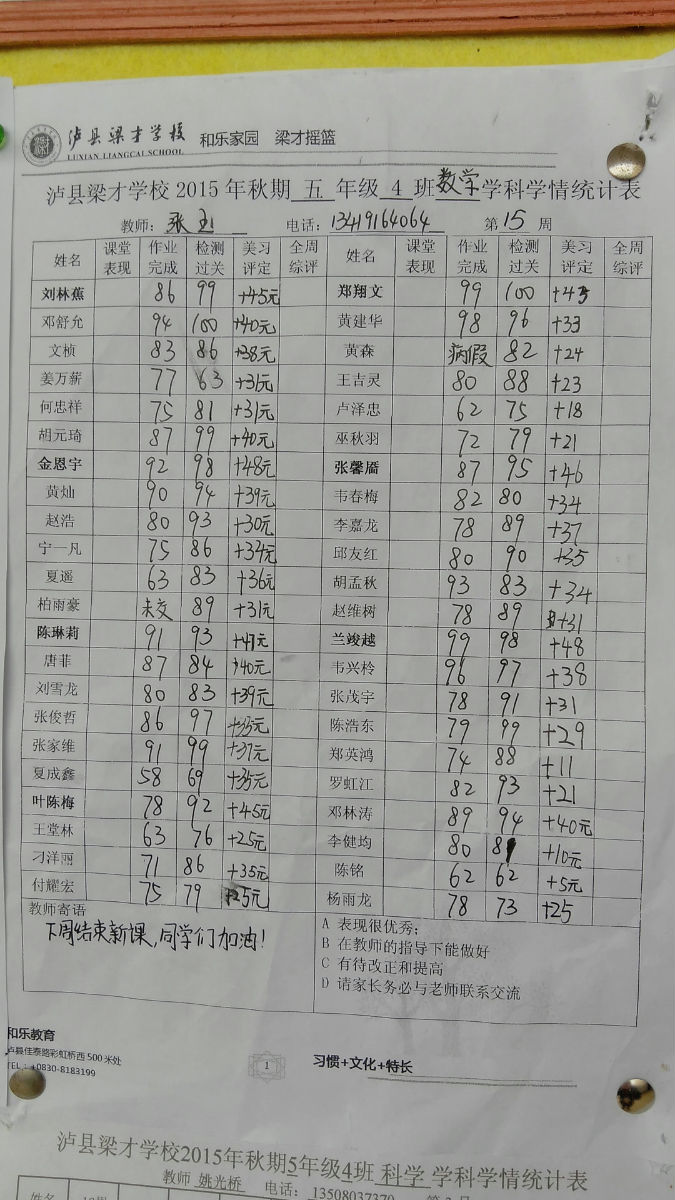 泸县梁才学校 和乐家园 梁才摇篮
LUXIAN LIANGCAI SCHOOL
泸县梁才学校2015年秋期 五 年级 4 班数学学科学情统计表
教师: 张玉 电话: 13419164064 第15周
姓名 课堂表现 作业完成 检测过关 美习评定 全周综评 姓名 课堂表现 作业完成 检测过关 美习评定 全周综评
刘林蕉 86 99 +45元 郑翔文 99 100 +45
邓舒允 94 100 +40元 黄建华 98 96 +33
文桢 83 86 +38元 黄森 病假 82 +24
姜万薪 77 63 +31元 王吉灵 80 88 +23
何忠祥 75 81 +31元 卢泽忠 62 75 +18
胡元琦 87 99 +40元 巫秋羽 72 79 +21
金恩宇 92 98 +48元 张馨月 87 95 +46
黄灿 90 94 +39元 韦春梅 82 80 +34
赵浩 80 93 +30元 李嘉龙 78 89 +37
宁一凡 75 86 +34元 邱友红 80 90 +35
夏遥 63 83 +36元 胡孟秋 93 83 +34
柏雨豪 未交 89 +31元 赵维树 78 89 +31
陈琳莉 91 93 +41元 兰竣越 99 98 +48
唐菲 87 84 +40元 韦兴柃 96 97 +38
刘雪龙 80 83 +39元 张茂宇 78 91 +31
张俊哲 86 97 +35元 陈浩东 79 99 +29
张家维 91 99 +37元 郑英鸿 74 88 +11
夏成鑫 58 69 +35元 罗虹江 82 93 +21
叶陈梅 78 92 +45元 邓林涛 89 94 +40元
王堂林 63 76 +25元 李健均 80 81 +10元
刁洋丽 71 86 +35元 陈铭 62 62 +5元
付耀宏 75 79 +25元 杨雨龙 78 73 +25
教师寄语
下周结束新课,同学们加油!
A 表现很优秀;
B 在教师的指导下能做好
C 有待改正和提高
D 请家长务必与老师联系交流
和乐教育
泸县佳泰路彩虹桥西500米处
TEL:+0830-8183199
1
习惯+文化+特长
泸县梁才学校2015年秋期5年级4班 科学 学科学情统计表
教师 姚光桥 电话: 13508037370
姓名